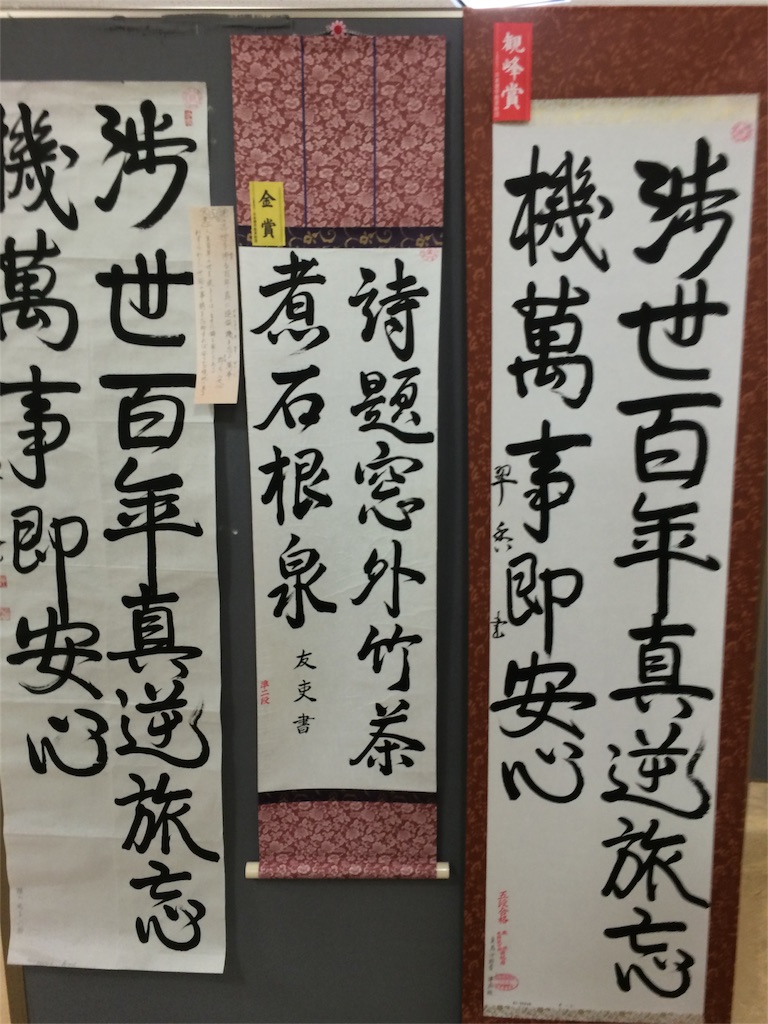 観峰賞
涉世百年真逆旅忘
機萬事即安心
翠香書
五段合格
金賞
詩題窓外竹茶
煮石根泉
友吏書
準二段
涉世百年真逆旅忘
機萬事即安心